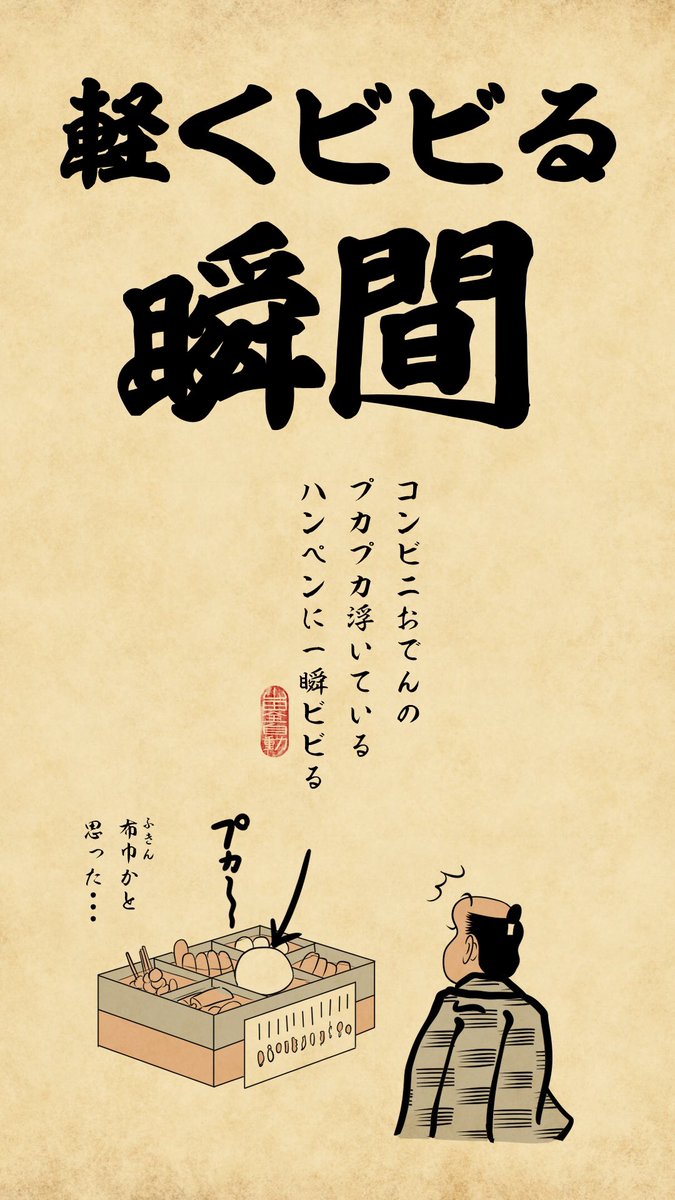 軽くビビる
瞬間
コンビニおでんの
プカプカ浮いている
ハンペンに一瞬ビビる
プカ〜
ふきん
布巾かと
思った・・・